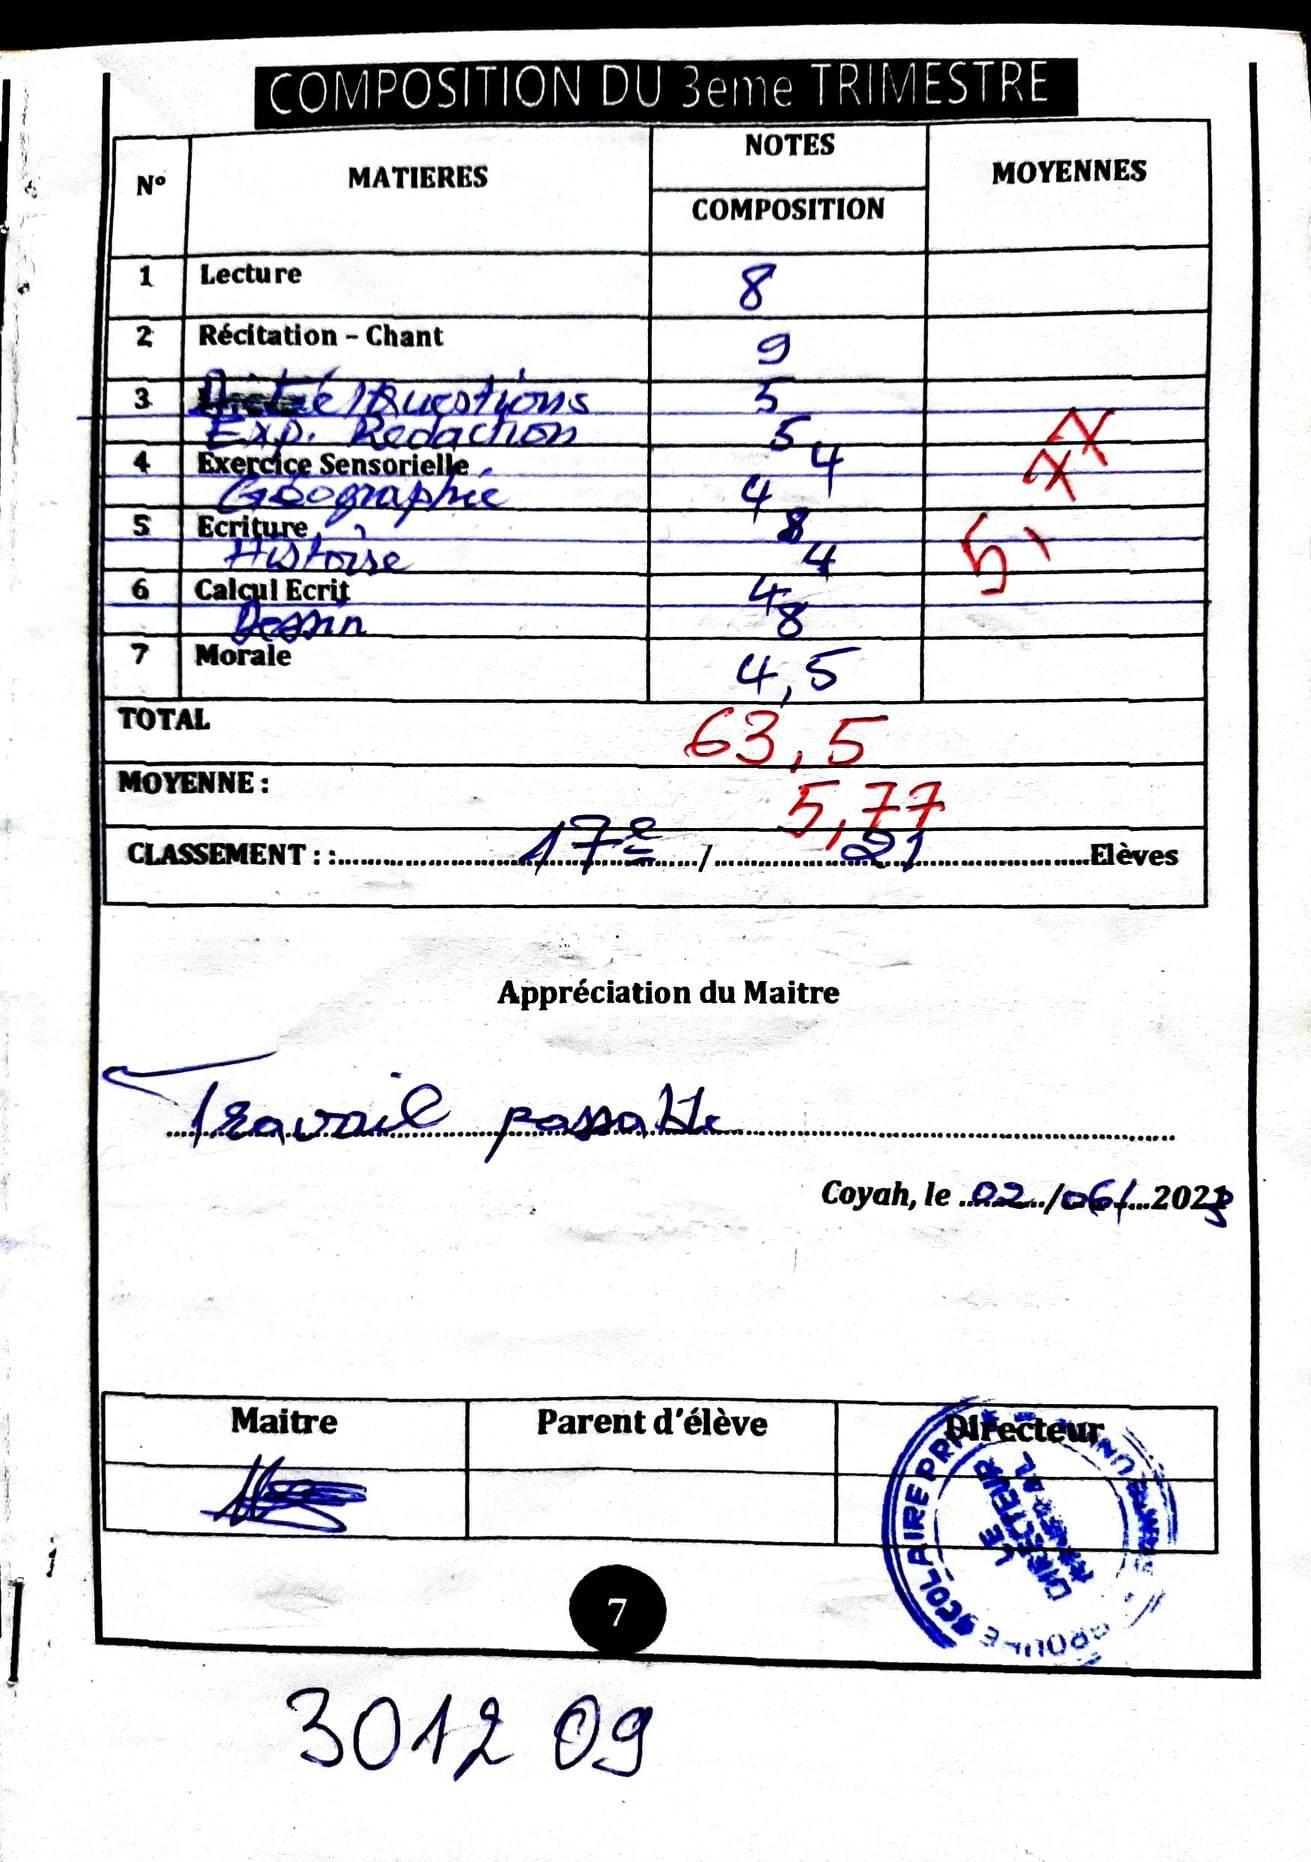 COMPOSITION DU 3eme TRIMESTRE
N° MATIERES NOTES MOYENNES
COMPOSITION
1 Lecture 8
2 Récitation – Chant 9
3 Dictée/Questions 5
Exp. Rédaction 5
4 Exercice Sensorielle 4
Géographie 4
5 Ecriture 8
Histoire 4
6 Calcul Ecrit 4
Dessin 8
7 Morale 4,5
5,77
TOTAL 63,5
MOYENNE : 5,77
CLASSEMENT : : 17e / 21 Elèves
Appréciation du Maitre
Travail passable
Coyah, le 02/06/2023
Maitre Parent d'élève Directeur
GROUPE SCOLAIRE PRIVE
LE
DIRECTEUR
7
3012 09